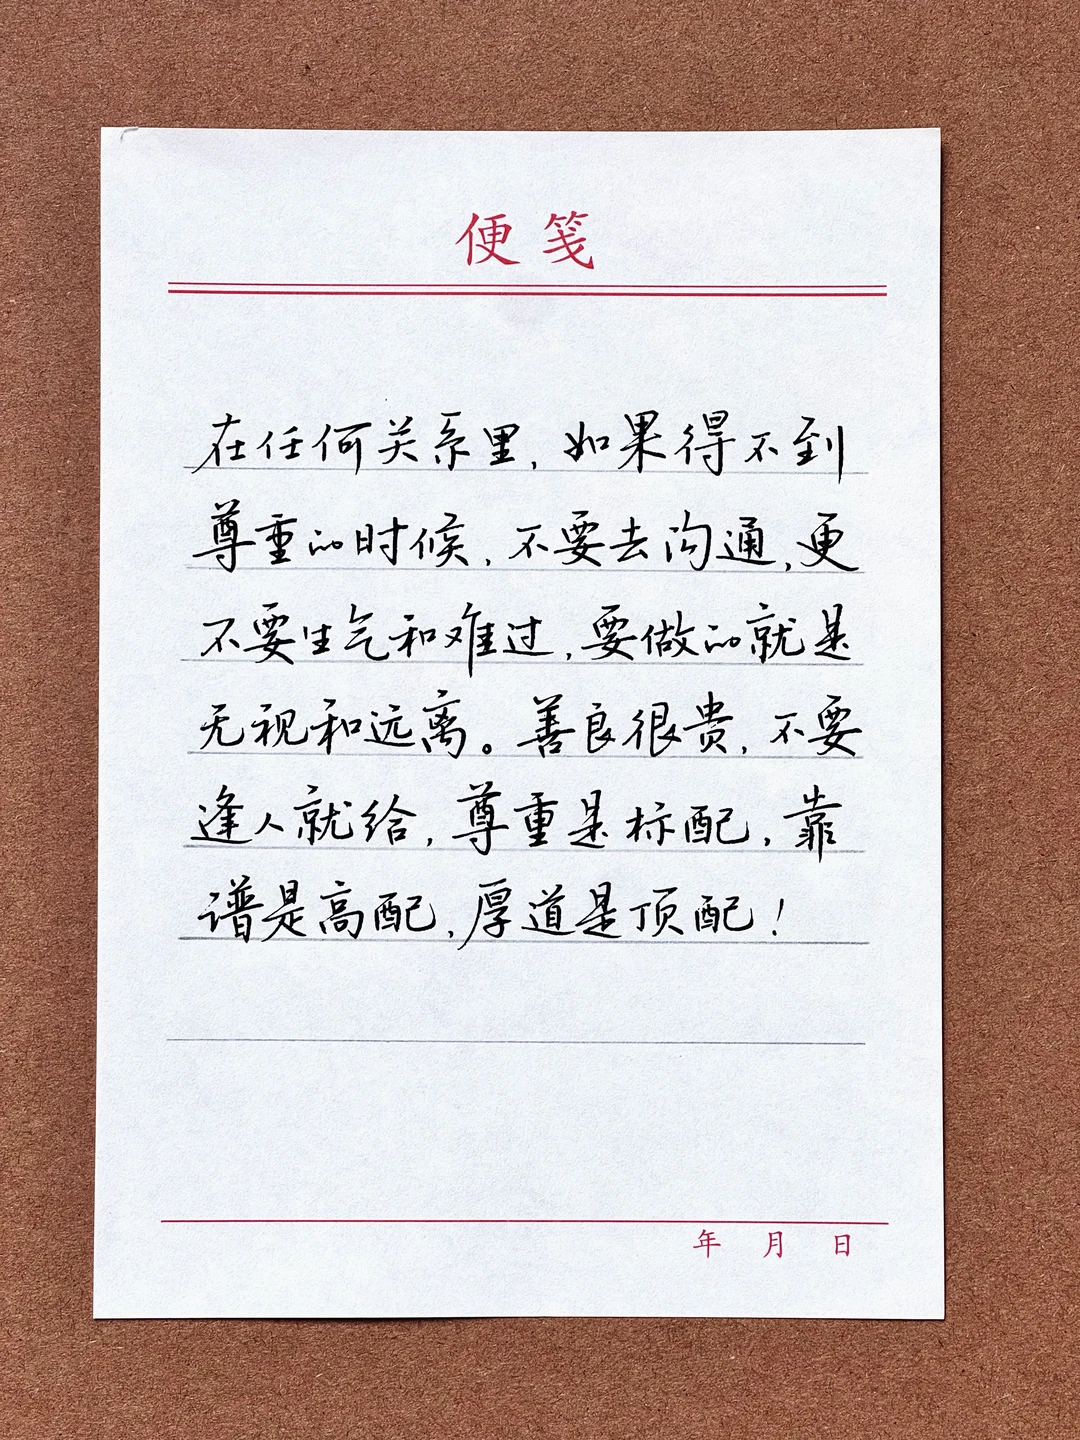 便笺
在任何关系里，如果得不到
尊重的时候，不要去沟通，更
不要生气和难过，要做的就是
无视和远离。善良很贵，不要
逢人就给，尊重是标配，靠
谱是高配，厚道是顶配！
年 月 日